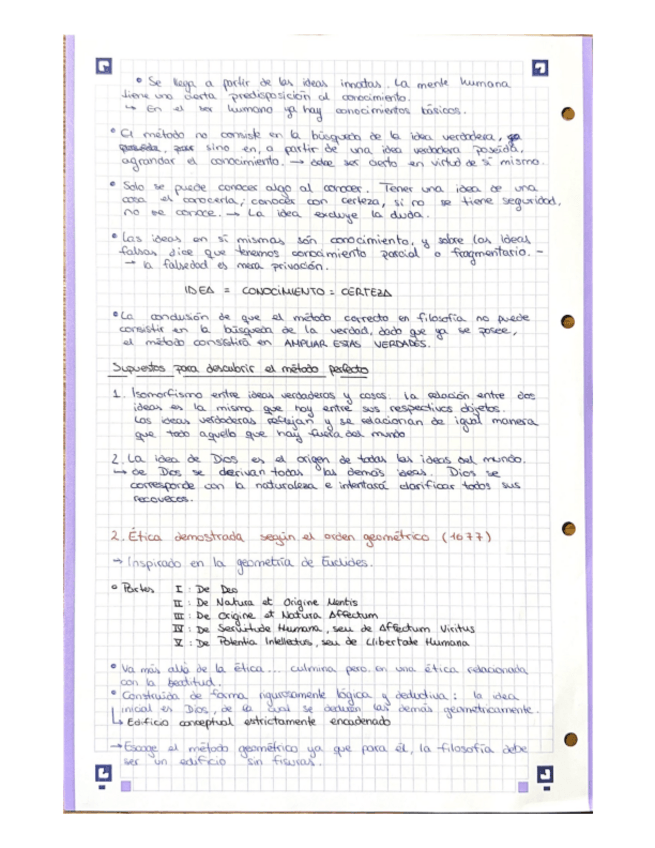 • Se llega a partir de las ideas innatas. La mente humana
tiene una cierta predisposición al conocimiento.
↳ En el ser humano ya hay conocimientos básicos.
• El método no consiste en la búsqueda de la idea verdadera, ya
poseída, sino en, a partir de una idea verdadera poseída,
agrandar el conocimiento. → debe ser cierto en virtud de sí mismo.
• Solo se puede conocer algo al conocer. Tener una idea de una
cosa es conocerla, conocer con certeza, si no se tiene seguridad,
no se conoce. → La idea excluye la duda.
• Las ideas en sí mismas son conocimiento, y sobre las ideas
falsas dice que tenemos conocimiento parcial o fragmentario. -
→ la falsedad es mera privación.
IDEA = CONOCIMIENTO = CERTEZA
• La conclusión de que el método correcto en filosofía no puede
consistir en la búsqueda de la verdad, dado que ya se posee,
el método consistirá en AMPLIAR ESAS VERDADES.
Supuestos para descubrir el método perfecto
1. Isomorfismo entre ideas verdaderas y cosas. La relación entre dos
ideas es la misma que hay entre sus respectivos objetos.
Las ideas verdaderas reflejan y se relacionan de igual manera
que todo aquello que hay fuera del mundo
2. La idea de Dios es el origen de todas las ideas del mundo.
→ de Dios se derivan todas las demás ideas. Dios se
corresponde con la naturaleza e intentará clarificar todos sus
recovecos.
2. Ética demostrada según el orden geométrico (1677)
→ Inspirado en la geometría de Euclides.
• Partes I : De Deo
II : De Natura et Origine Mentis
III : De Origine et Natura Affectum
IV : De Servitude Humana, seu de Affectum Viritus
V : De Potentia Intellectus, seu de Llibertate Humana
• Va más allá de la ética... culmina pero en una ética relacionada
con la beatitud.
• Construida de forma rigurosamente lógica y deductiva: la idea
inicial es Dios, de la cual se deducen las demás geométricamente.
↳ Edificio conceptual estrictamente encadenado
→ Escoge el método geométrico ya que para él, la filosofía debe
ser un edificio sin fisuras.